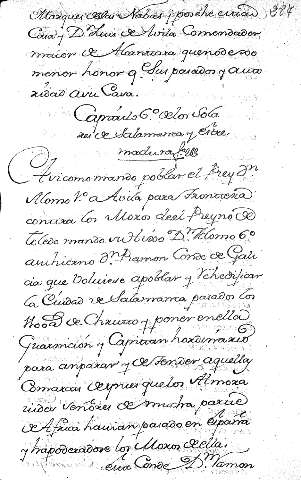 Marques de las Nabas y posehe oy una 327
Casa y Dn Luis de Avila Comendador
maior de Alcantara que no dexo
menor honor q Sus pasados y auto
ridad a su Casa.
Capitulo 6º de los Sola
res de Salamanca y Estre
madura
Asi como mando poblar el Rey Dn
Alonso Vº a Avila para frontera
contra los Moros de el Reyno de
toledo mando su hijo Dn Alonso 6º
a Dn Ramon Conde de Gali
cia que volviese a poblar y Rehedificar
la Ciudad de Salamanca pasados los
de Christo y poner en ella
Guarnicion y Capitan hordinario
para anparar y defender aquella
Comarca despues que los Almora
vides Señores de mucha parte
de Africa havian pasado en España
y hapoderadose los Moros de ella
este Conde Dn Ramon